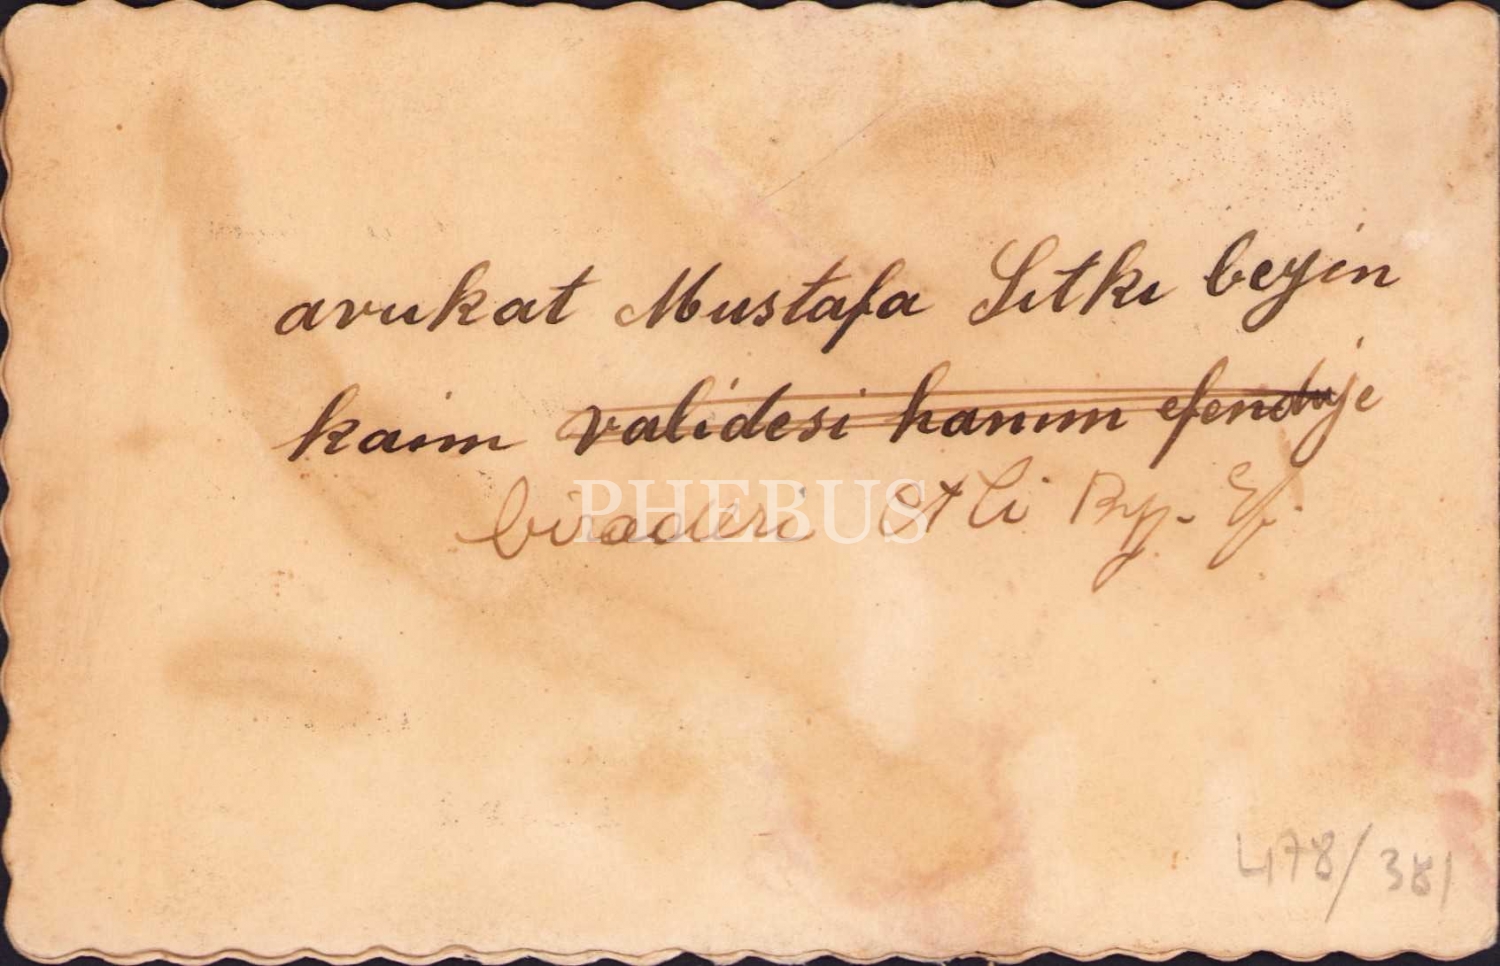 avukat Mustafa Sıtkı beyin
kaim validesi hanım efendiye
biraderi Ali Ef.
PHEBUS
478/381